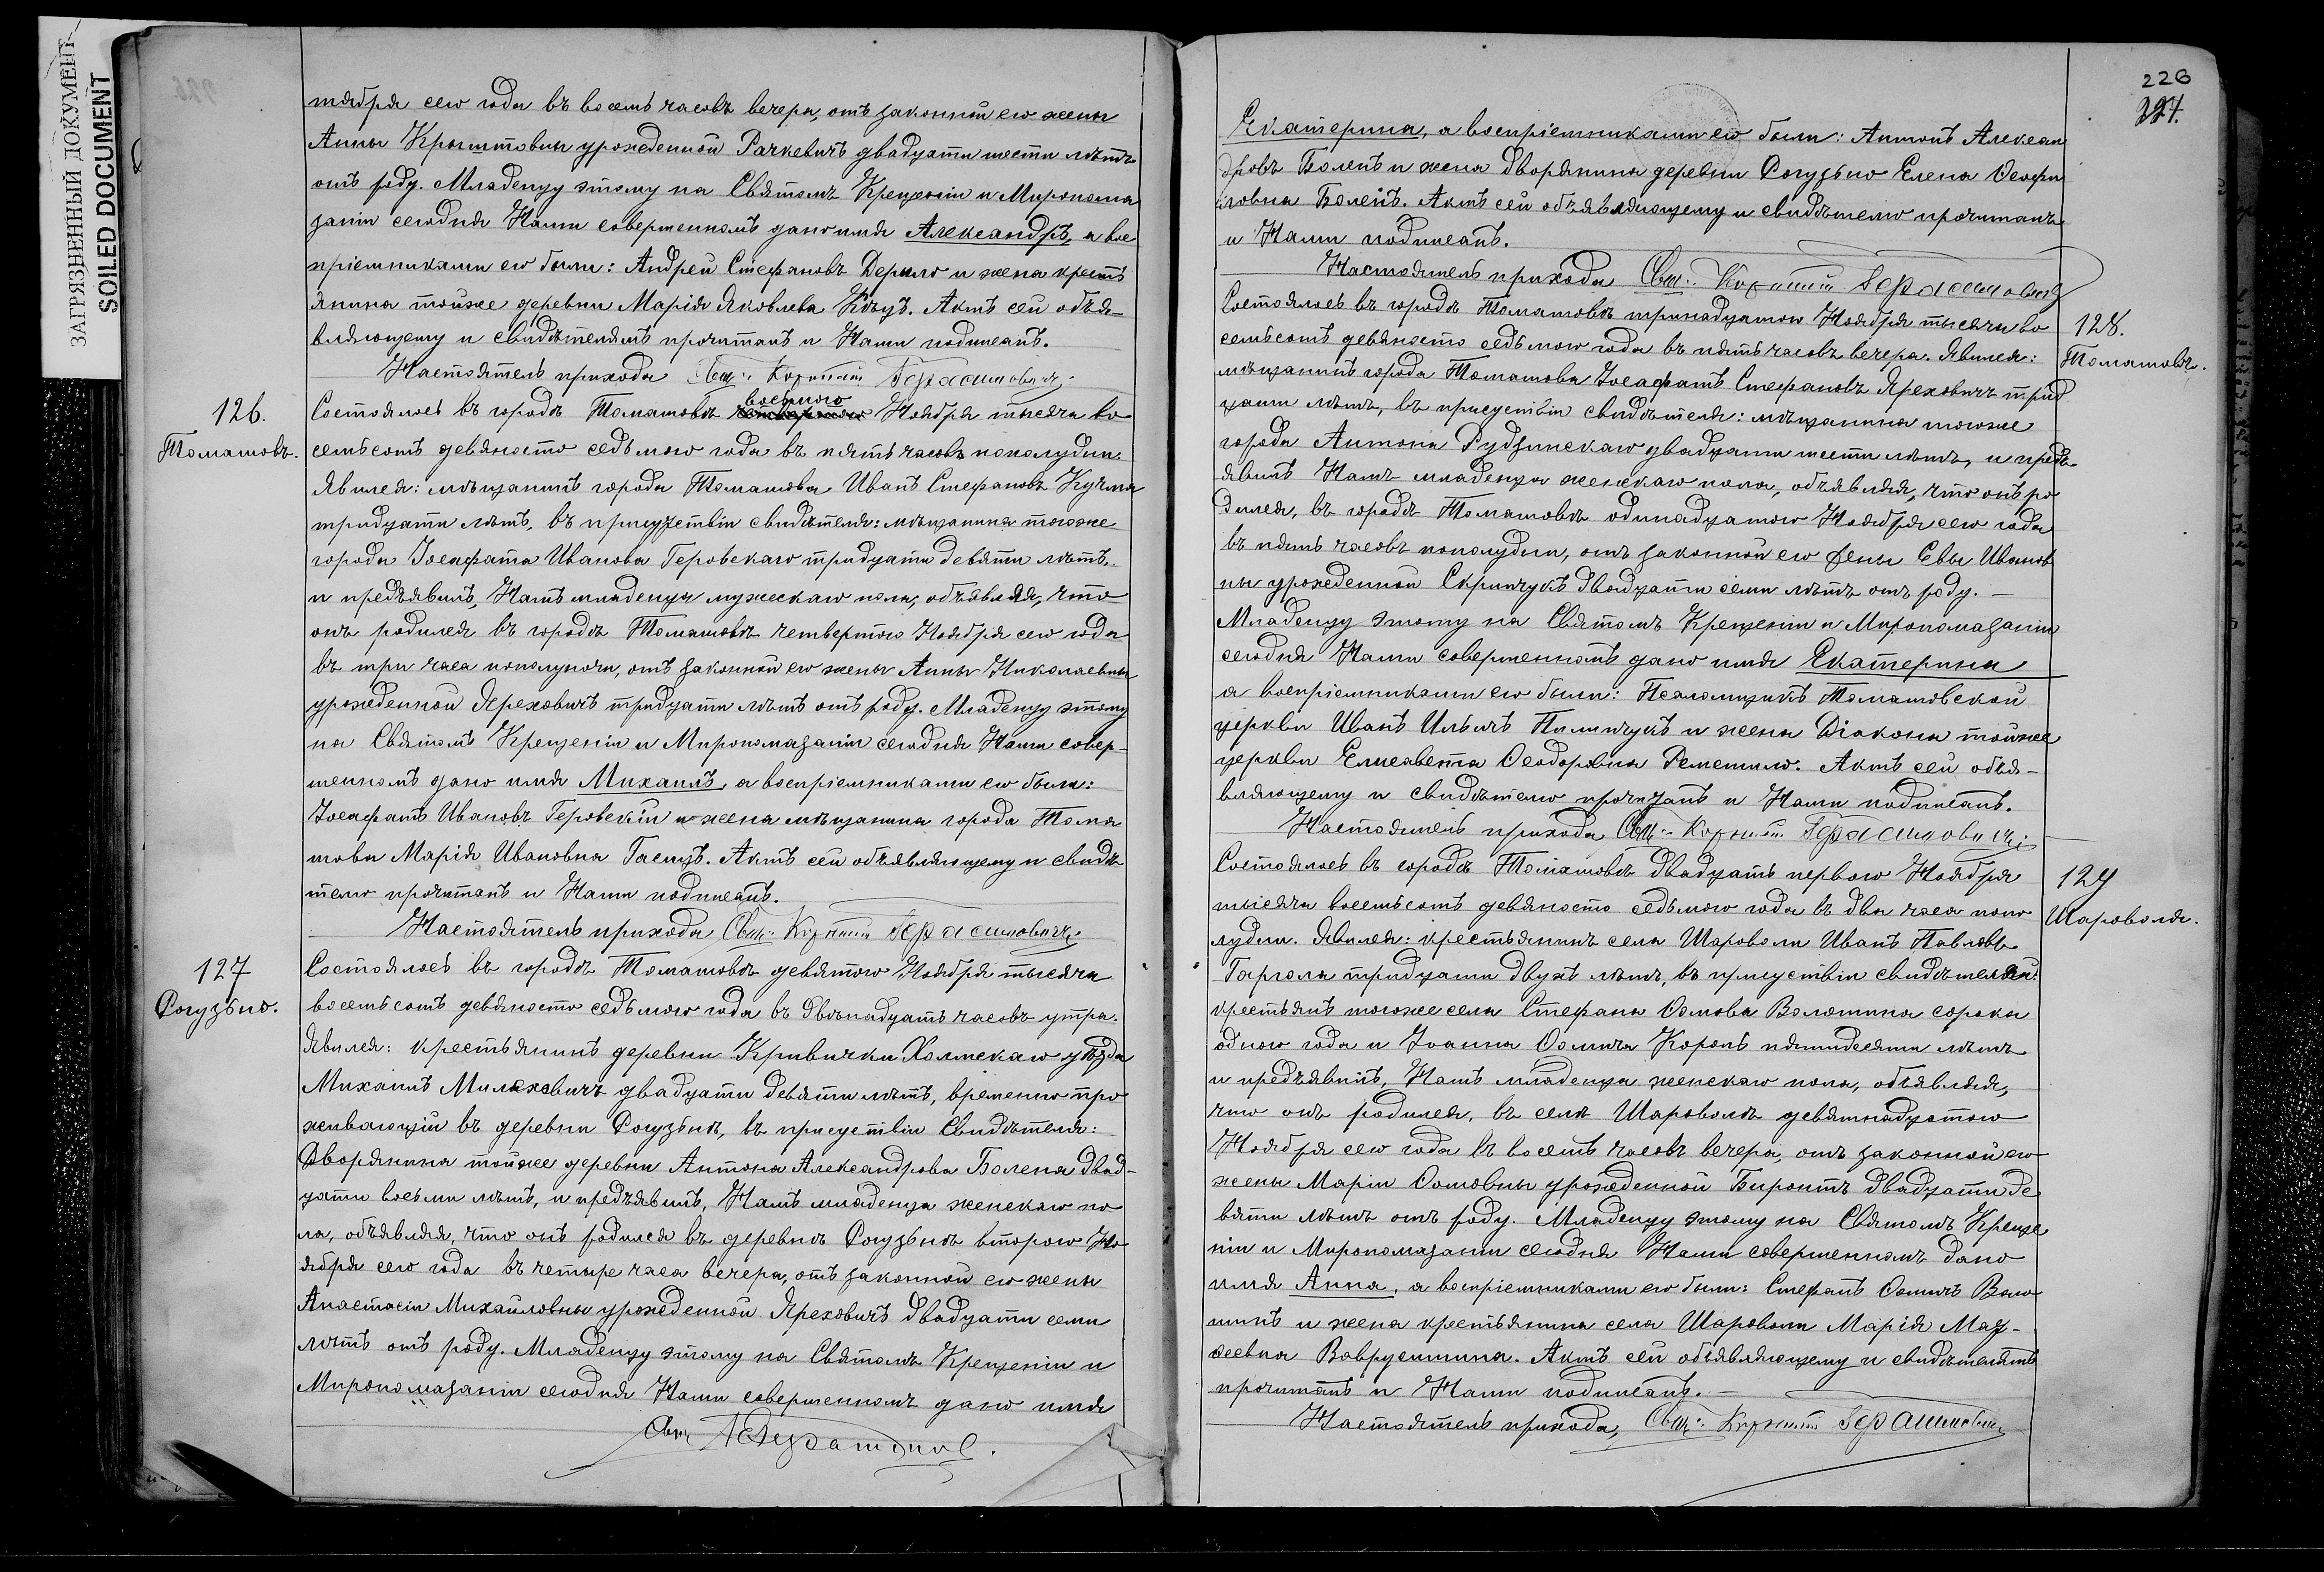 ЗАГРЯЗНЕННЫЙ ДОКУМЕНТ
SOILED DOCUMENT
тября сего года въ восемь часовъ вечера, отъ законной его жены
Анны Крыштовны урожденной Рачкевичъ двадцати шести лѣтъ
отъ роду. Младенцу этому на Святомъ Крещеніи и Миропома
заніи сегодня Нами совершенномъ дано имя Александръ, а вос
пріемниками его были: Андрей Стефановъ Дерило и жена кресть
янина тойже деревни Марія Яковлева Коцъ. Актъ сей объя-
вляющему и свидѣтелямъ прочитанъ и Нами подписанъ.
Настоятель прихода Свящ: Корнилій Герасимовичъ
126.
Томашовъ.
Состоялось въ городѣ Томашовѣ восьмого Ноября тысяча во
семьсотъ девяносто седьмого года въ пять часовъ пополудни.
Явился: мѣщанинъ города Томашова Иванъ Стефановъ Кучма
тридцати лѣтъ, въ присутствіи свидѣтеля: мѣщанина тогоже
города Іосафата Иванова Геровскаго тридцати девяти лѣтъ,
и предъявилъ Намъ младенца мужескаго пола, объявляя, что
онъ родился въ городѣ Томашовѣ четвертого Ноября сего года
въ три часа пополуночи, отъ законной его жены Анны Николаевны
урожденной Яреховичъ тридцати лѣтъ отъ роду. Младенцу этому
на Святомъ Крещеніи и Миропомазаніи сегодня Нами совер-
шенномъ дано имя Михаилъ, а воспріемниками его были:
Іосафатъ Ивановъ Геровскій и жена мѣщанина города Тома
шова Марія Ивановна Гасцъ. Актъ сей объявляющему и свидѣ
телю прочитанъ и Нами подписанъ.
Настоятель прихода Свящ: Корнилій Герасимовичъ
127
Рогузьно.
Состоялось въ городѣ Томашовѣ девятого Ноября тысяча
восемьсотъ девяносто седьмого года въ двѣнадцать часовъ утра.
Явился: крестьянинъ деревни Кривички Холмскаго уѣзда
Михаилъ Милеховичъ двадцати девяти лѣтъ, временно про
живающій въ деревни Рогузьнѣ, въ присутствіи свидѣтеля:
Дворянина тойже деревни Антона Александрова Болена двад-
цати восьми лѣтъ, и предъявилъ, Намъ младенца женскаго по
ла, объявляя, что онъ родился въ деревнѣ Рогузьнѣ второго Но
ября сего года въ четыре часа вечера, отъ законной его жены
Анастасіи Михайловны урожденной Яреховичъ двадцати семи
лѣтъ отъ роду. Младенцу этому на Святомъ Крещеніи и
Миропомазаніи сегодня Нами совершенномъ дано имя
226
227.
Екатерина, а воспріемниками его были: Антонъ Алексан
дровъ Боленъ и жена дворянина деревни Рогузьно Елена Онуфрі
ловна Боленъ. Актъ сей объявляющему и свидѣтелю прочитанъ
и Нами подписанъ.
Настоятель прихода Свящ: Корнилій Герасимовичъ
128.
Томашовъ.
Состоялось въ городѣ Томашовѣ тринадцатого Ноября тысяча во
семьсотъ девяносто седьмого года въ пять часовъ вечера. Явился:
мѣщанинъ города Томашова Іосафатъ Стефановъ Яреховичъ трид
цати лѣтъ, въ присутствіи свидѣтеля: мѣщанина тогоже
города Антона Рудзинскаго двадцати шести лѣтъ, и предъ
явилъ Намъ младенца женскаго пола, объявляя, что онъ ро
дился, въ городѣ Томашовѣ одинадцатого Ноября сего года
въ пять часовъ пополудни, отъ законной его жены Евы Иванов
ны урожденной Скринчукъ двадцати семи лѣтъ отъ роду. —
Младенцу этому на Святомъ Крещеніи и Миропомазаніи
сегодня Нами совершенномъ дано имя Екатерина
а воспріемниками его были: Псаломщикъ Томашовской
церкви Иванъ Ильичъ Пилипчукъ и жена Діакона тойже
церкви Елисавета Ѳеодоровна Ременило. Актъ сей объя-
вляющему и свидѣтелю прочитанъ и Нами подписанъ.
Настоятель прихода Свящ: Корнилій Герасимовичъ
129
Шароволя.
Состоялось въ городѣ Томашовѣ двадцать первого Ноября
тысяча восемьсотъ девяносто седьмого года въ два часа попо
лудни. Явился: крестьянинъ села Шароволи Иванъ Павловъ
Гаргола тридцати двухъ лѣтъ, въ присутствіи свидѣтелей:
крестьянъ тогоже села Стефана Ѳомова Волошина сорока
одного года и Іоанна Ѳомича Коронъ пятидесяти лѣтъ
и предъявилъ, Намъ младенца женскаго пола, объявляя,
что онъ родился, въ селѣ Шароволѣ девятнадцатого
Ноября сего года въ восемь часовъ вечера, отъ законной его
жены Маріи Ѳомовны урожденной Биронтъ двадцати де
вяти лѣтъ отъ роду. Младенцу этому на Святомъ Креще
ніи и Миропомазаніи сегодня Нами совершенномъ дано
имя Анна, а воспріемниками его были: Стефанъ Ѳомичъ Воло
шинъ и жена крестьянина села Шароволи Марія Мат-
ѳеевна Ваврусишина. Актъ сей объявляющему и свидѣтелямъ
прочитанъ и Нами подписанъ. —
Настоятель прихода, Свящ: Корнилій Герасимовичъ